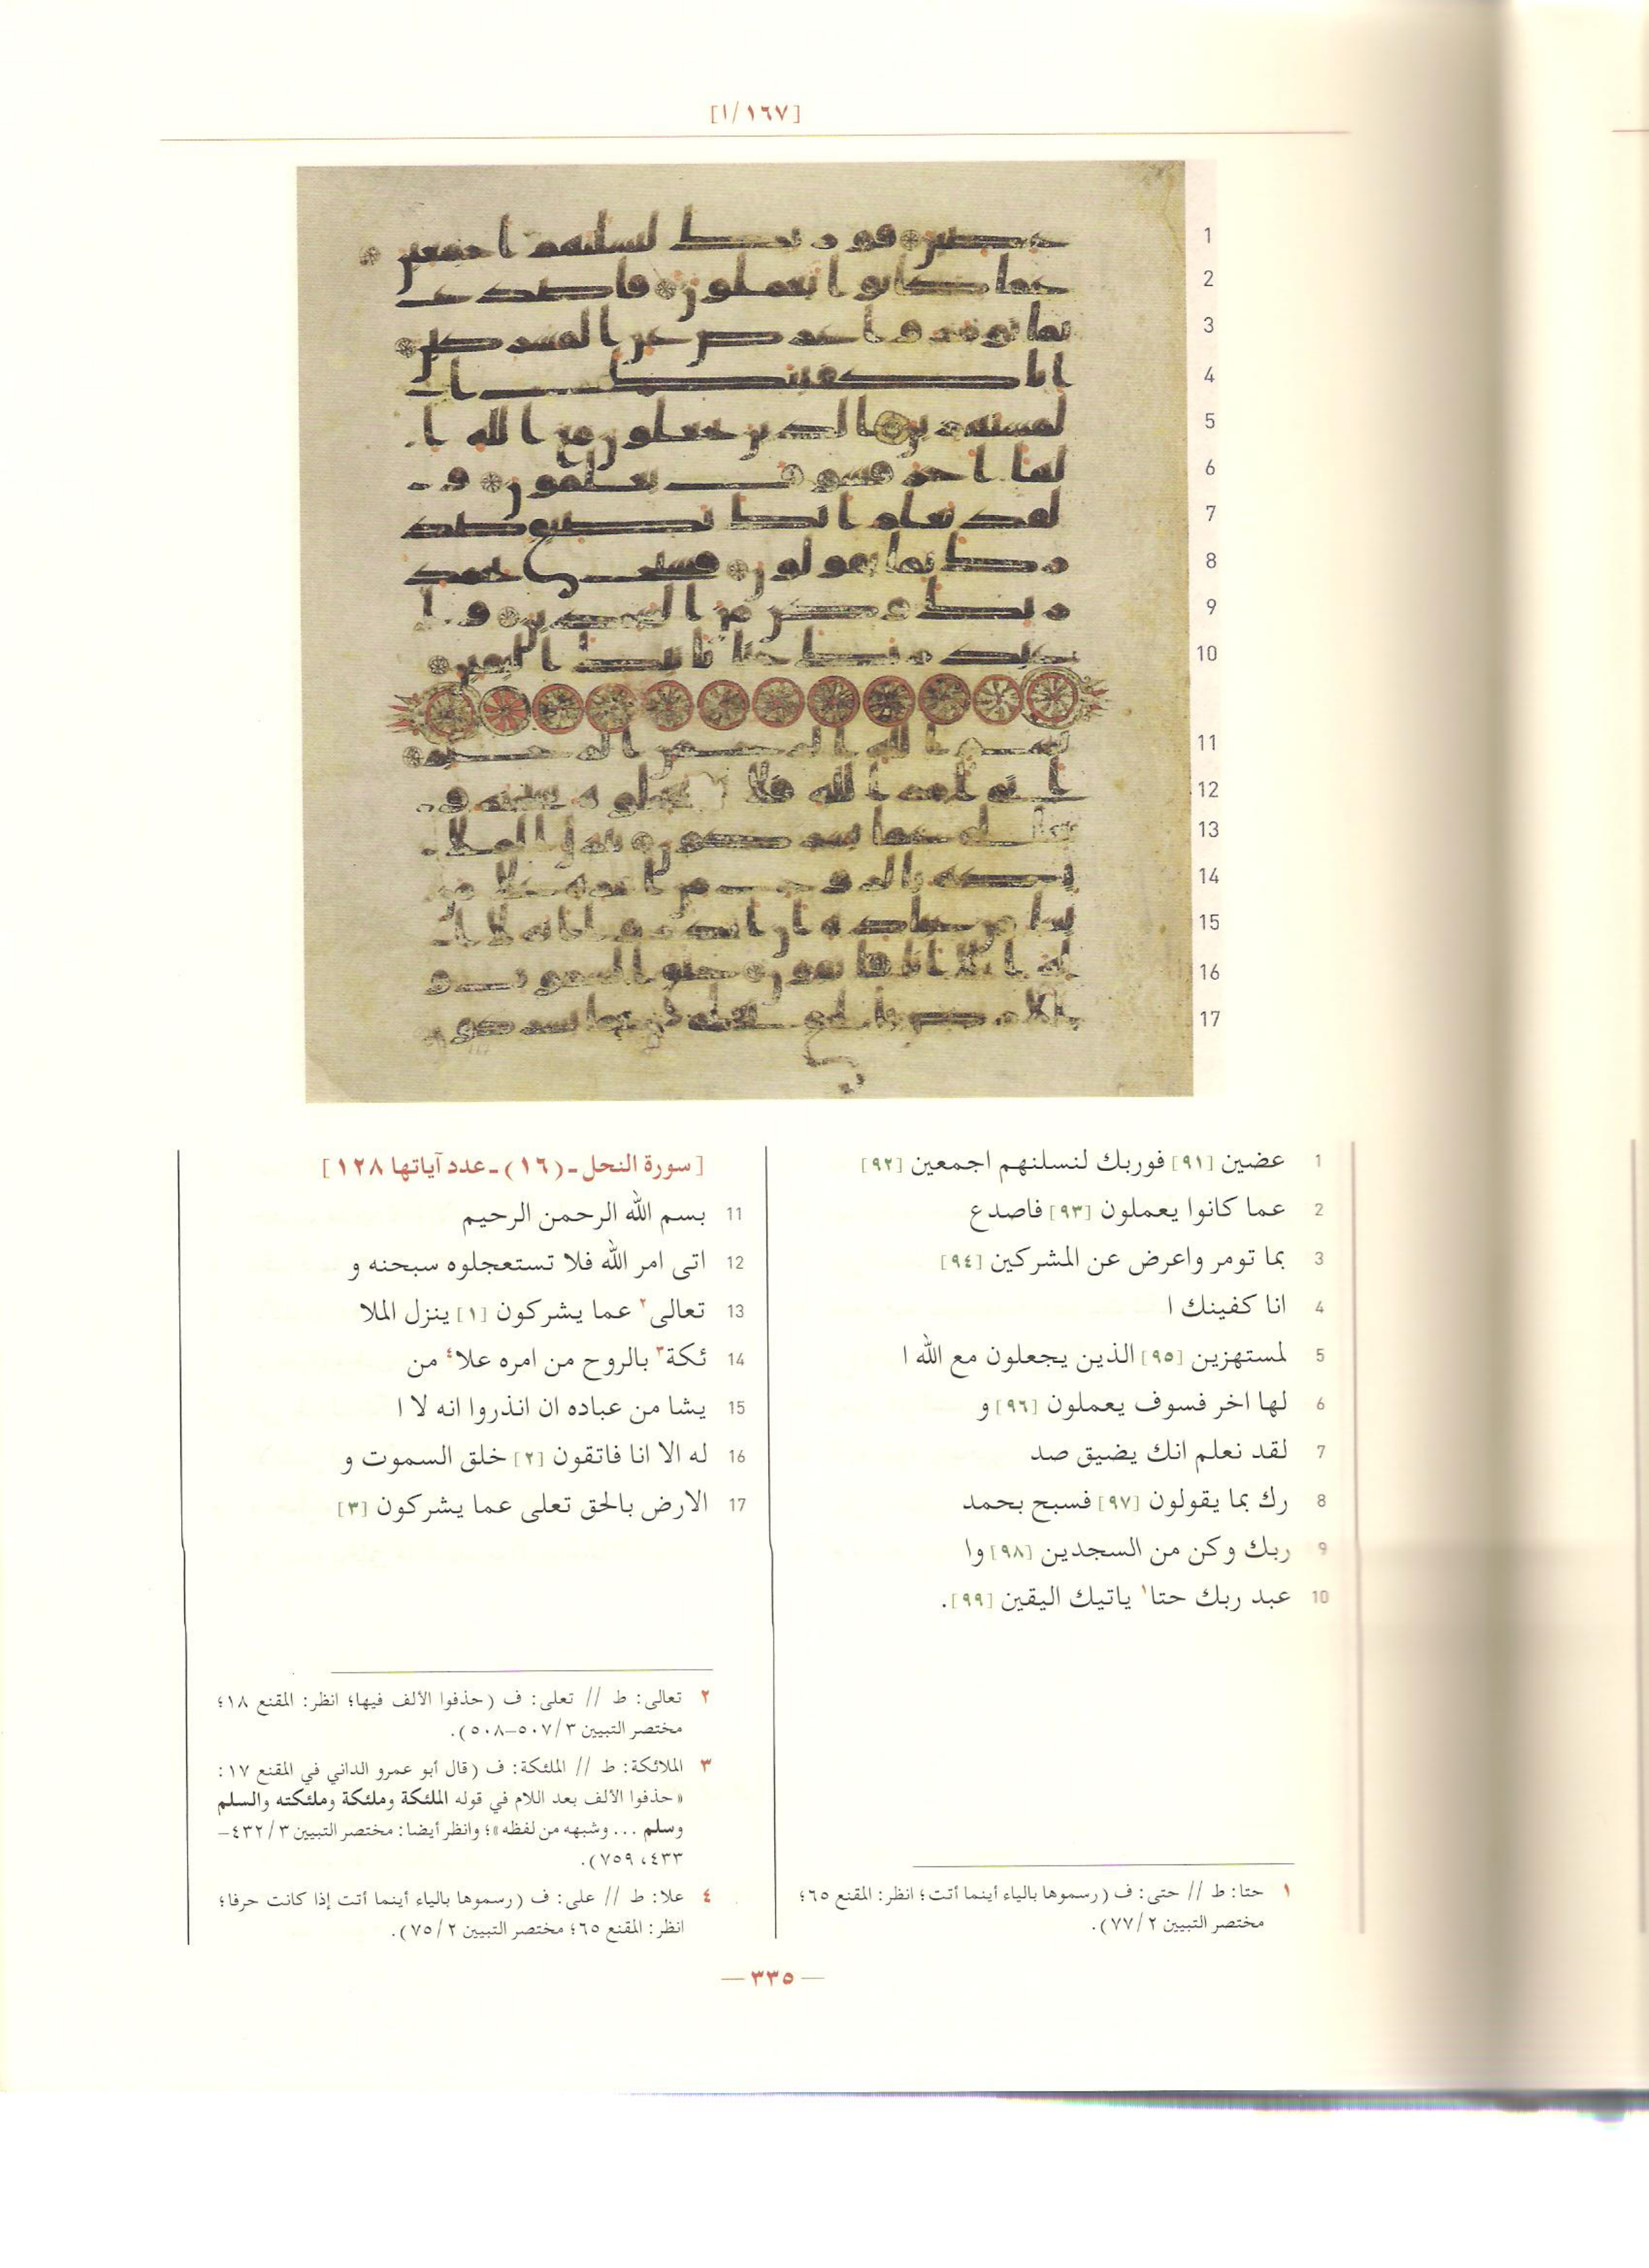 [١/١٦٧]
1 عضين [٩١] فوربك لنسلنهم اجمعين [٩٢]
2 عما كانوا يعملون [٩٣] فاصدع
3 بما تومر واعرض عن المشركين [٩٤]
4 انا كفينك ا
5 لمستهزين [٩٥] الذين يجعلون مع الله ا
6 لها اخر فسوف يعملون [٩٦] و
7 لقد نعلم انك يضيق صد
8 رك بما يقولون [٩٧] فسبح بحمد
9 ربك وكن من السجدين [٩٨] وا
10 عبد ربك حتا١ ياتيك اليقين [٩٩].
١ حتا: ط // حتى: ف (رسموها بالياء أينما أتت؛ انظر: المقنع ٦٥؛
مختصر التبيين ٢/٧٧).
[سورة النحل ـ (١٦) ـ عدد آياتها ١٢٨]
11 بسم الله الرحمن الرحيم
12 اتى امر الله فلا تستعجلوه سبحنه و
13 تعالى٢ عما يشركون [١] ينزل الملا
14 ئكة٣ بالروح من امره علا٤ من
15 يشا من عباده ان انذروا انه لا ا
16 له الا انا فاتقون [٢] خلق السموت و
17 الارض بالحق تعلى عما يشركون [٣]
٢ تعالى: ط // تعلى: ف (حذفوا الألف فيها؛ انظر: المقنع ١٨؛
مختصر التبيين ٣/٥٠٧–٥٠٨).
٣ الملائكة: ط // الملئكة: ف (قال أبو عمرو الداني في المقنع ١٧:
«حذفوا الألف بعد اللام في قوله الملئكة وملئكة وملئكته والسلم
وسلم ... وشبهه من لفظه»؛ وانظر أيضا: مختصر التبيين ٣/٤٣٢–
٤٣٣، ٧٥٩).
٤ علا: ط // على: ف (رسموها بالياء أينما أتت إذا كانت حرفا؛
انظر: المقنع ٦٥؛ مختصر التبيين ٢/٧٥).
— ٣٣٥ —